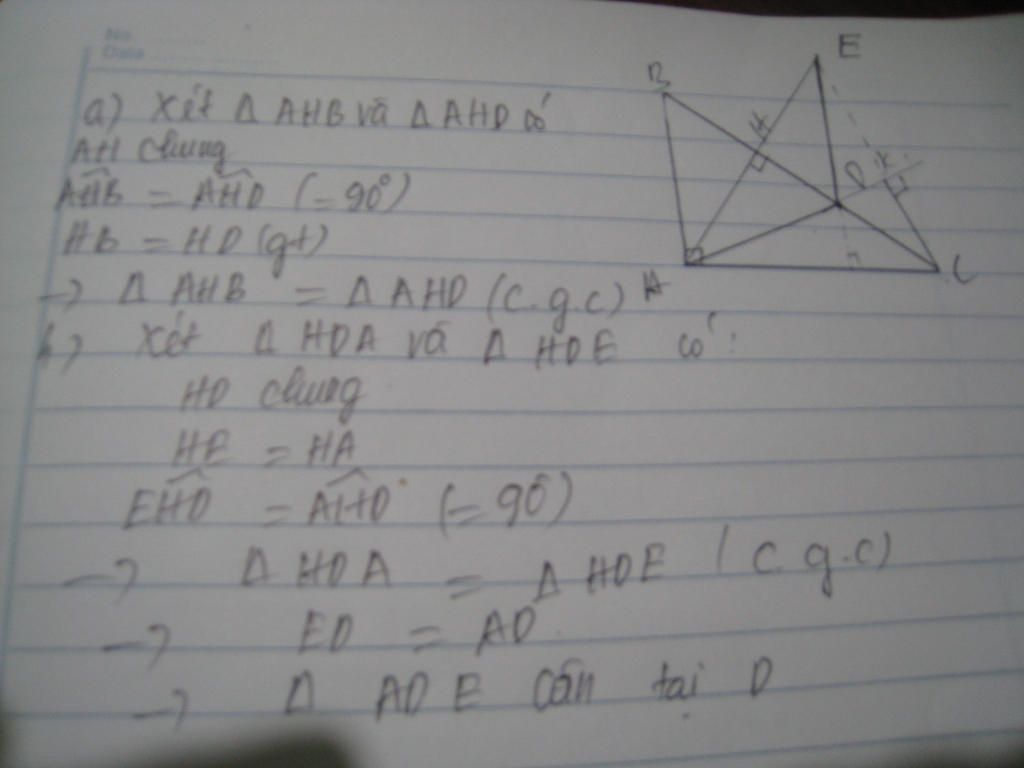 No
Date
a) Xét Δ AHB và Δ AHD có
AH chung
AHB = AHD (= 90°)
HB = HD (gt)
→ Δ AHB = Δ AHD (c.g.c)
b) Xét Δ HDA và Δ HDE có :
HD chung
HE = HA
EHD = AHD (= 90)
→ Δ HDA = Δ HDE (c.g.c)
→ ED = AD
→ Δ ADE cân tại D
E
B
H
D
K
A
C